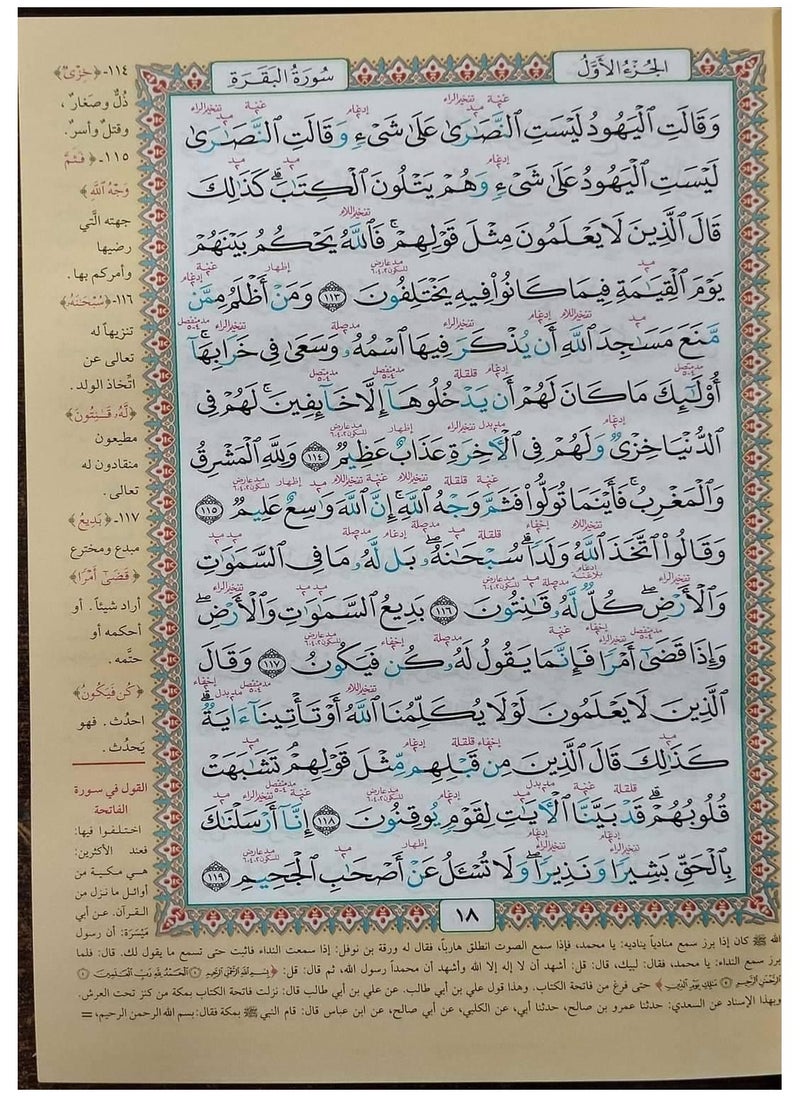 الجُزْءُ الأَوَّلُ
سُورَةُ البَقَرَةِ
وَقَالَتِ ٱلْيَهُودُ لَيْسَتِ ٱلنَّصَٰرَىٰ عَلَىٰ شَىْءٍ وَقَالَتِ ٱلنَّصَٰرَىٰ
لَيْسَتِ ٱلْيَهُودُ عَلَىٰ شَىْءٍ وَهُمْ يَتْلُونَ ٱلْكِتَٰبَ ۗ كَذَٰلِكَ
قَالَ ٱلَّذِينَ لَا يَعْلَمُونَ مِثْلَ قَوْلِهِمْ ۚ فَٱللَّهُ يَحْكُمُ بَيْنَهُمْ
يَوْمَ ٱلْقِيَٰمَةِ فِيمَا كَانُوا۟ فِيهِ يَخْتَلِفُونَ ١١٣ وَمَنْ أَظْلَمُ مِمَّن
مَّنَعَ مَسَٰجِدَ ٱللَّهِ أَن يُذْكَرَ فِيهَا ٱسْمُهُۥ وَسَعَىٰ فِى خَرَابِهَآ ۚ
أُو۟لَٰٓئِكَ مَا كَانَ لَهُمْ أَن يَدْخُلُوهَآ إِلَّا خَآئِفِينَ ۚ لَهُمْ فِى
ٱلدُّنْيَا خِزْىٌ وَلَهُمْ فِى ٱلْءَاخِرَةِ عَذَابٌ عَظِيمٌ ١١٤ وَلِلَّهِ ٱلْمَشْرِقُ
وَٱلْمَغْرِبُ ۚ فَأَيْنَمَا تُوَلُّوا۟ فَثَمَّ وَجْهُ ٱللَّهِ ۚ إِنَّ ٱللَّهَ وَٰسِعٌ عَلِيمٌ ١١٥
وَقَالُوا۟ ٱتَّخَذَ ٱللَّهُ وَلَدًا ۗ سُبْحَٰنَهُۥ ۖ بَل لَّهُۥ مَا فِى ٱلسَّمَٰوَٰتِ
وَٱلْأَرْضِ ۖ كُلٌّ لَّهُۥ قَٰنِتُونَ ١١٦ بَدِيعُ ٱلسَّمَٰوَٰتِ وَٱلْأَرْضِ ۖ
وَإِذَا قَضَىٰٓ أَمْرًا فَإِنَّمَا يَقُولُ لَهُۥ كُن فَيَكُونُ ١١٧ وَقَالَ
ٱلَّذِينَ لَا يَعْلَمُونَ لَوْلَا يُكَلِّمُنَا ٱللَّهُ أَوْ تَأْتِينَآ ءَايَةٌ ۗ
كَذَٰلِكَ قَالَ ٱلَّذِينَ مِن قَبْلِهِم مِّثْلَ قَوْلِهِمْ ۘ تَشَٰبَهَتْ
قُلُوبُهُمْ ۗ قَدْ بَيَّنَّا ٱلْءَايَٰتِ لِقَوْمٍ يُوقِنُونَ ١١٨ إِنَّآ أَرْسَلْنَٰكَ
بِٱلْحَقِّ بَشِيرًا وَنَذِيرًا ۖ وَلَا تُسْـَٔلُ عَنْ أَصْحَٰبِ ٱلْجَحِيمِ ١١٩
١٨
١١٤-﴿خِزْىٌ﴾
ذُلٌّ وصَغارٌ،
وقتلٌ وأسرٌ.
١١٥-﴿فَثَمَّ
وَجْهُ ٱللَّهِ﴾
جهته الَّتي
رضيها
وأمركم بها.
١١٦-﴿سُبْحَٰنَهُۥ﴾
تنزيهاً له
تعالى عن
اتِّخاذ الولد.
﴿لَّهُۥ قَٰنِتُونَ﴾
مطيعون
منقادون له
تعالى.
١١٧-﴿بَدِيعُ﴾
مبدع ومخترع
﴿قَضَىٰٓ أَمْرًا﴾
أراد شيئاً. أو
أحكمه أو
حتَّمه.
﴿كُن فَيَكُونُ﴾
احدُث. فهو
يَحدُث.
القول في سورة
الفاتحة
اختلفوا فيها:
فعند الأكثرين:
هي مكية من
أوائل ما نزل من
القرآن. عن أبي
مَيْسَرَة: أن رسول
الله ﷺ كان إذا برز سمع منادياً يناديه: يا محمد، فإذا سمع الصوت انطلق هارباً، فقال له ورقة بن نوفل: إذا سمعت النداء فاثبت حتى تسمع ما يقول لك. قال: فلما
برز سمع النداء: يا محمد، فقال: لبيك، قال: قل: أشهد أن لا إله إلا الله وأشهد أن محمداً رسول الله، ثم قال: قل: ﴿بِسْمِ ٱللَّهِ ٱلرَّحْمَٰنِ ٱلرَّحِيمِ ١ ٱلْحَمْدُ لِلَّهِ رَبِّ ٱلْعَٰلَمِينَ ٢
ٱلرَّحْمَٰنِ ٱلرَّحِيمِ ٣ مَٰلِكِ يَوْمِ ٱلدِّينِ﴾ حتى فرغ من فاتحة الكتاب. وهذا قول علي بن أبي طالب. عن علي بن أبي طالب قال: نزلت فاتحة الكتاب بمكة من كنز تحت العرش.
وبهذا الإسناد عن السعدي: حدثنا عمرو بن صالح، حدثنا أبي، عن الكلبي، عن أبي صالح، عن ابن عباس قال: قام النبي ﷺ بمكة فقال: بسم الله الرحمن الرحيم، =